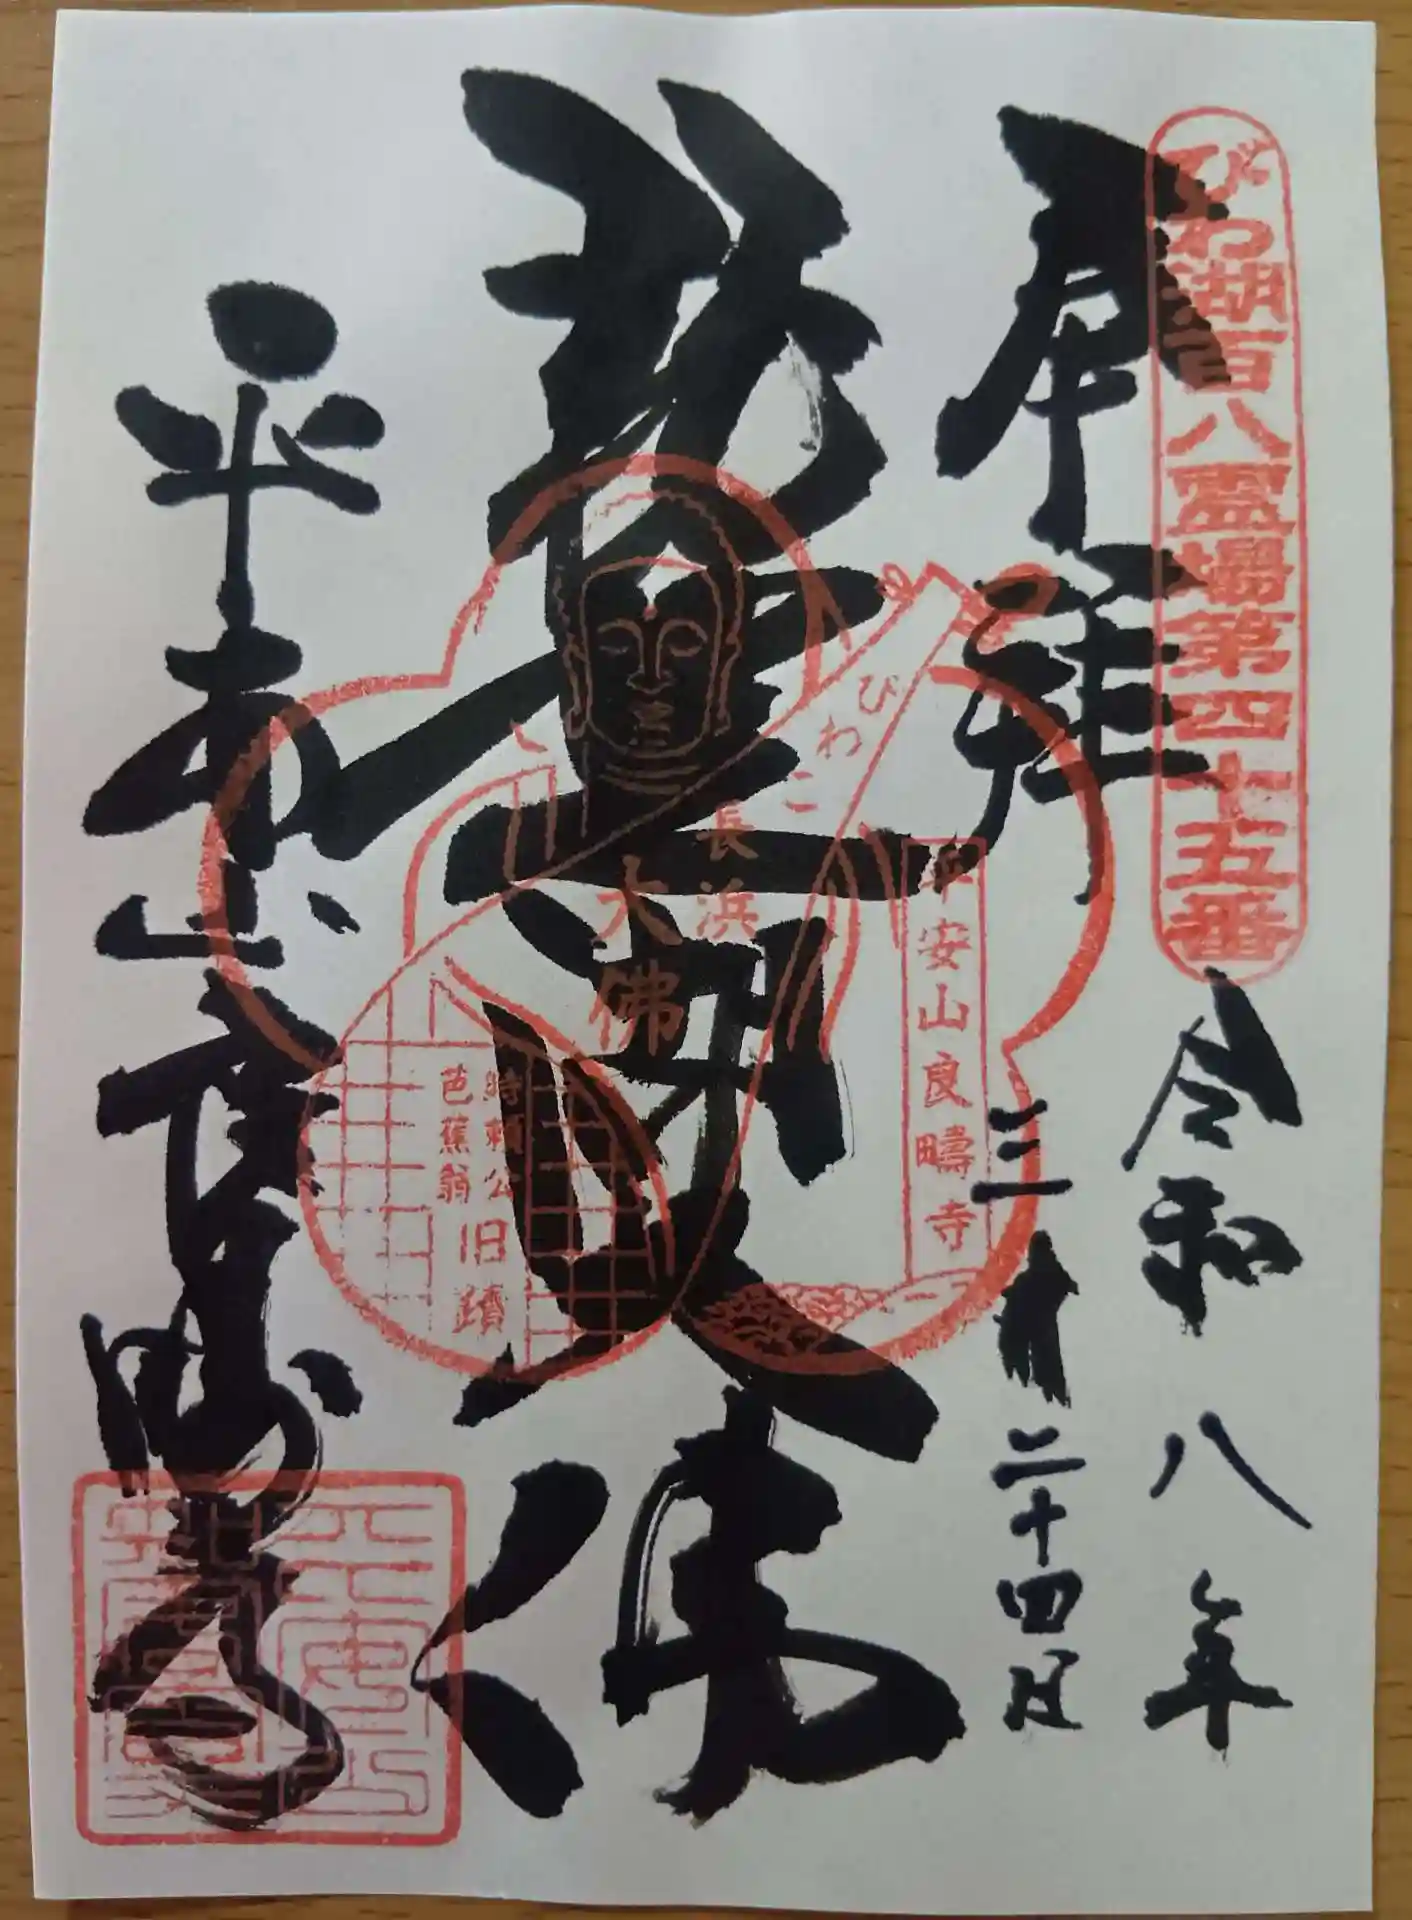 びわ湖百八霊場第四十五番
奉拝
令和八年
三月二十四日
平安山良疇寺
びわこ
長浜
大佛
時頼公
芭蕉翁
旧蹟
平安山良疇寺